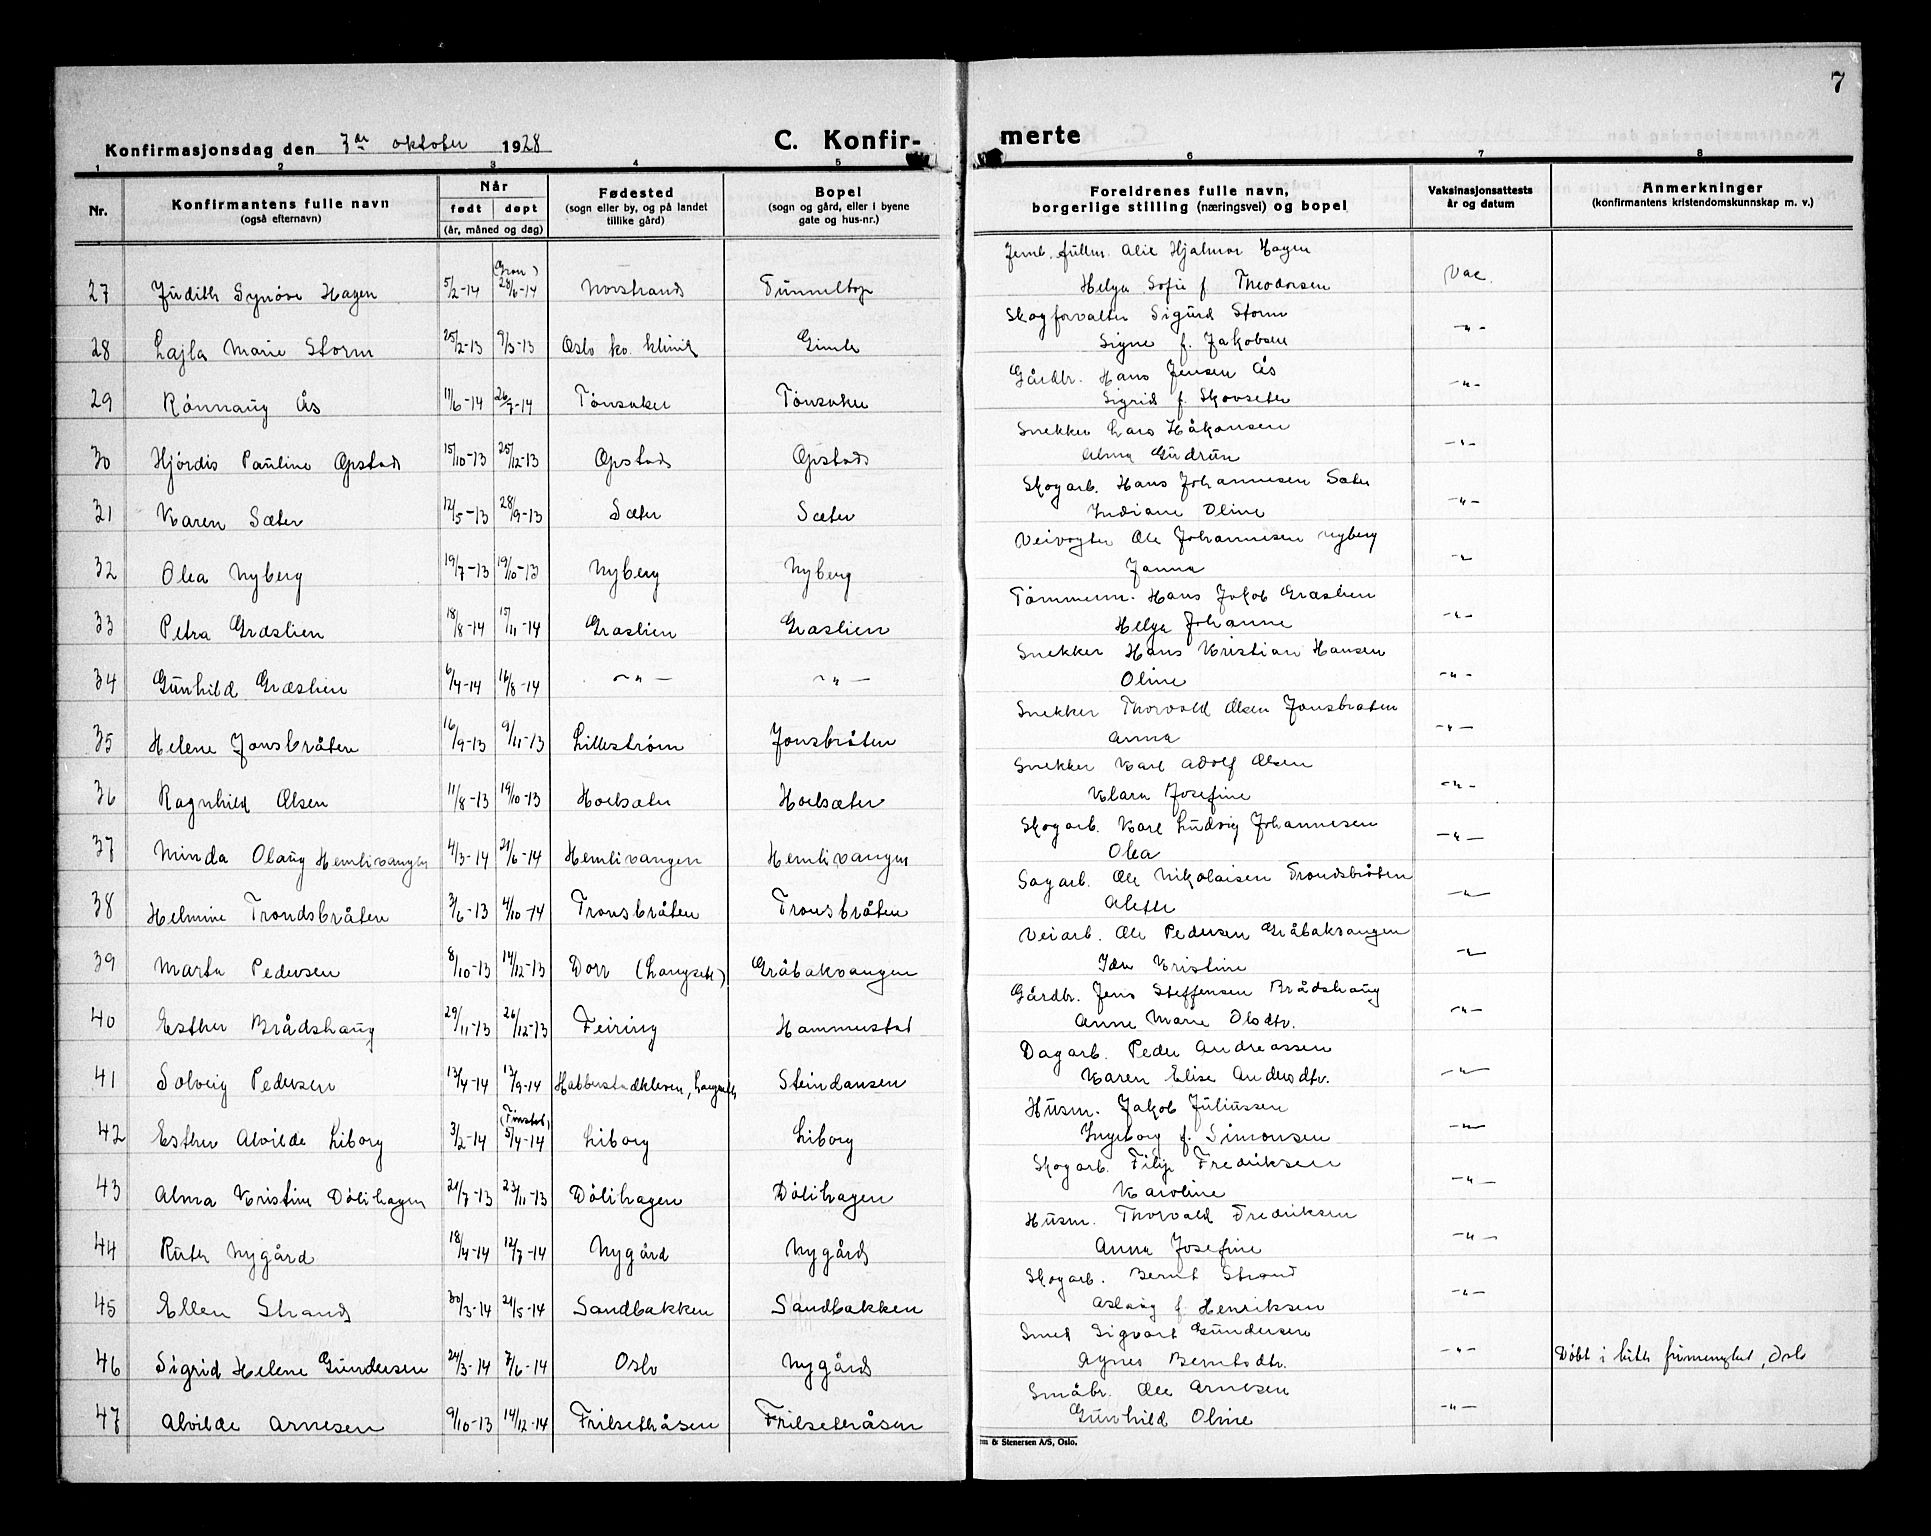 7
Konfirmasjonsdag den 7de oktober 1928
C. Konfir-
merte
1 2 3 4 5 6 7 8
Nr.
Konfirmantens fulle navn
(også efternavn)
Når
født døpt
(år, måned og dag)
Fødested
(sogn eller by, og på landet
tillike gård)
Bopel
(sogn og gård, eller i byene
gate og hus-nr.)
Foreldrenes fulle navn,
borgerlige stilling (næringsvei) og bopel
Vaksinasjonsattests
år og datum
Anmerkninger
(konfirmantens kristendomskunnskap m. v.)
(Gran) Jernb. fullm. Hjalmar Hagen
27 Judith Synøve Hagen 5/2-14 28/6-14 Norstrand Tunneltop Helga Sofie f Theodorsen Vac.
Skogforvalter Sigurd Storm
28 Lajla Marie Storm 25/2-13 9/3-13 Oslo kv. klinik Gimle Signe f. Jakobsen -"-
Gårdbr. Hans Jensen Ås
29 Rønnaug Ås 11/6-14 26/7-14 Tønsaker Tønsaker Sigrid f. Skovseter -"-
Snekker Lars Håkonsen
30 Hjørdis Pauline Opstad 15/10-13 25/12-13 Opstad Opstad Alma Gudrun -"-
Skogarb. Hans Johannesen Sæter
31 Karen Sæter 12/5-13 28/9-13 Sæter Sæter Indiane Oline -"-
Veivogter Ole Johannesen Nyberg
32 Olea Nyberg 19/7-13 19/10-13 Nyberg Nyberg Janna -"-
Tømmerm. Hans Jakob Græslien
33 Petra Græslien 18/8-14 15/11-14 Græslien Græslien Helga Johanne -"-
Snekker Hans Kristian Hansen
34 Gunhild Græslien 6/4-14 16/8-14 -"- -"- Oline -"-
Snekker Thorvald Olsen Jonsbråten
35 Helene Jonsbråten 16/9-13 9/11-13 Lillestrøm Jonsbråten Anna -"-
Snekker Karl Adolf Olsen
36 Ragnhild Olsen 11/8-13 19/10-13 Hoelsæter Hoelsæter Klara Josefine -"-
Skogarb. Karl Ludvig Johannesen
37 Minda Olaug Hemlivangen 4/3-14 21/6-14 Hemlivangen Hemlivangen Olea -"-
Sagarb. Ole Nikolaisen Trondsbråten
38 Helmine Trondsbråten 3/6-13 4/10-14 Tronsbråten Tronsbråten Alette -"-
Veiarb. Ole Pedersen Gråbakvangen
39 Marta Pedersen 8/10-13 14/12-13 Dorr (Langseth) Gråbakvangen Ida Kristine -"-
Gårdbr. Jens Steffensen Brådshaug
40 Esther Brådshaug 29/11-13 26/12-13 Feiring Hammerstad Anne Marie Olsdtr. -"-
Dagarb. Peder Andreassen
41 Solveig Pedersen 13/4-14 13/9-14 Habberstadkleven, Langseth Steindansen Karen Elise Andersdtr. -"-
(Tinstad) Husm. Jakob Juliussen
42 Esther Alvilde Liborg 3/2-14 5/4-14 Liborg Liborg Ingeborg f. Simonsen -"-
Skogarb. Filip Fredriksen
43 Alma Kristine Dølihagen 21/7-13 23/11-13 Dølihagen Dølihagen Karoline -"-
Husm. Thorvald Fredriksen
44 Ruth Nygård 18/4-14 12/7-14 Nygård Nygård Anna Josefine -"-
Skogarb. Bernt Strand
45 Ellen Strand 30/3-14 21/5-14 Sandbakken Sandbakken Aslaug f Henriksen -"-
Smed Sigvart Gundersen
46 Sigrid Helene Gundersen 24/3-14 7/6-14 Oslo Nygård Agnes Berntsdtr. -"- Døbt i luth frimenighet, Oslo
Småbr. Ole Arnesen
47 Alvilde Arnesen 9/10-13 14/12-14 Frilsethåsen Frilsethåsen Gunhild Oline -"-
& Stenersen A/S, Oslo.